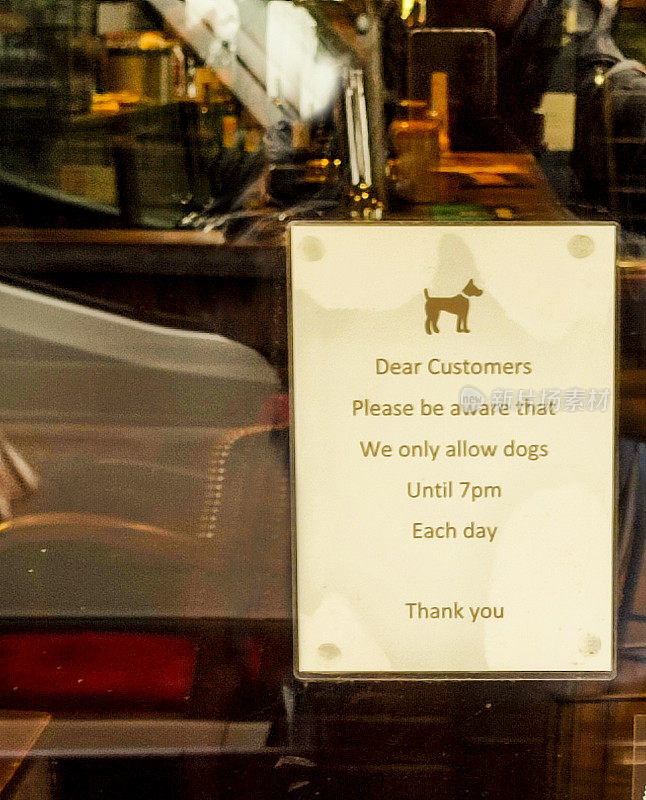 Dear Customers
Please be aware that
We only allow dogs
Until 7pm
Each day
Thank you
new 新片场素材